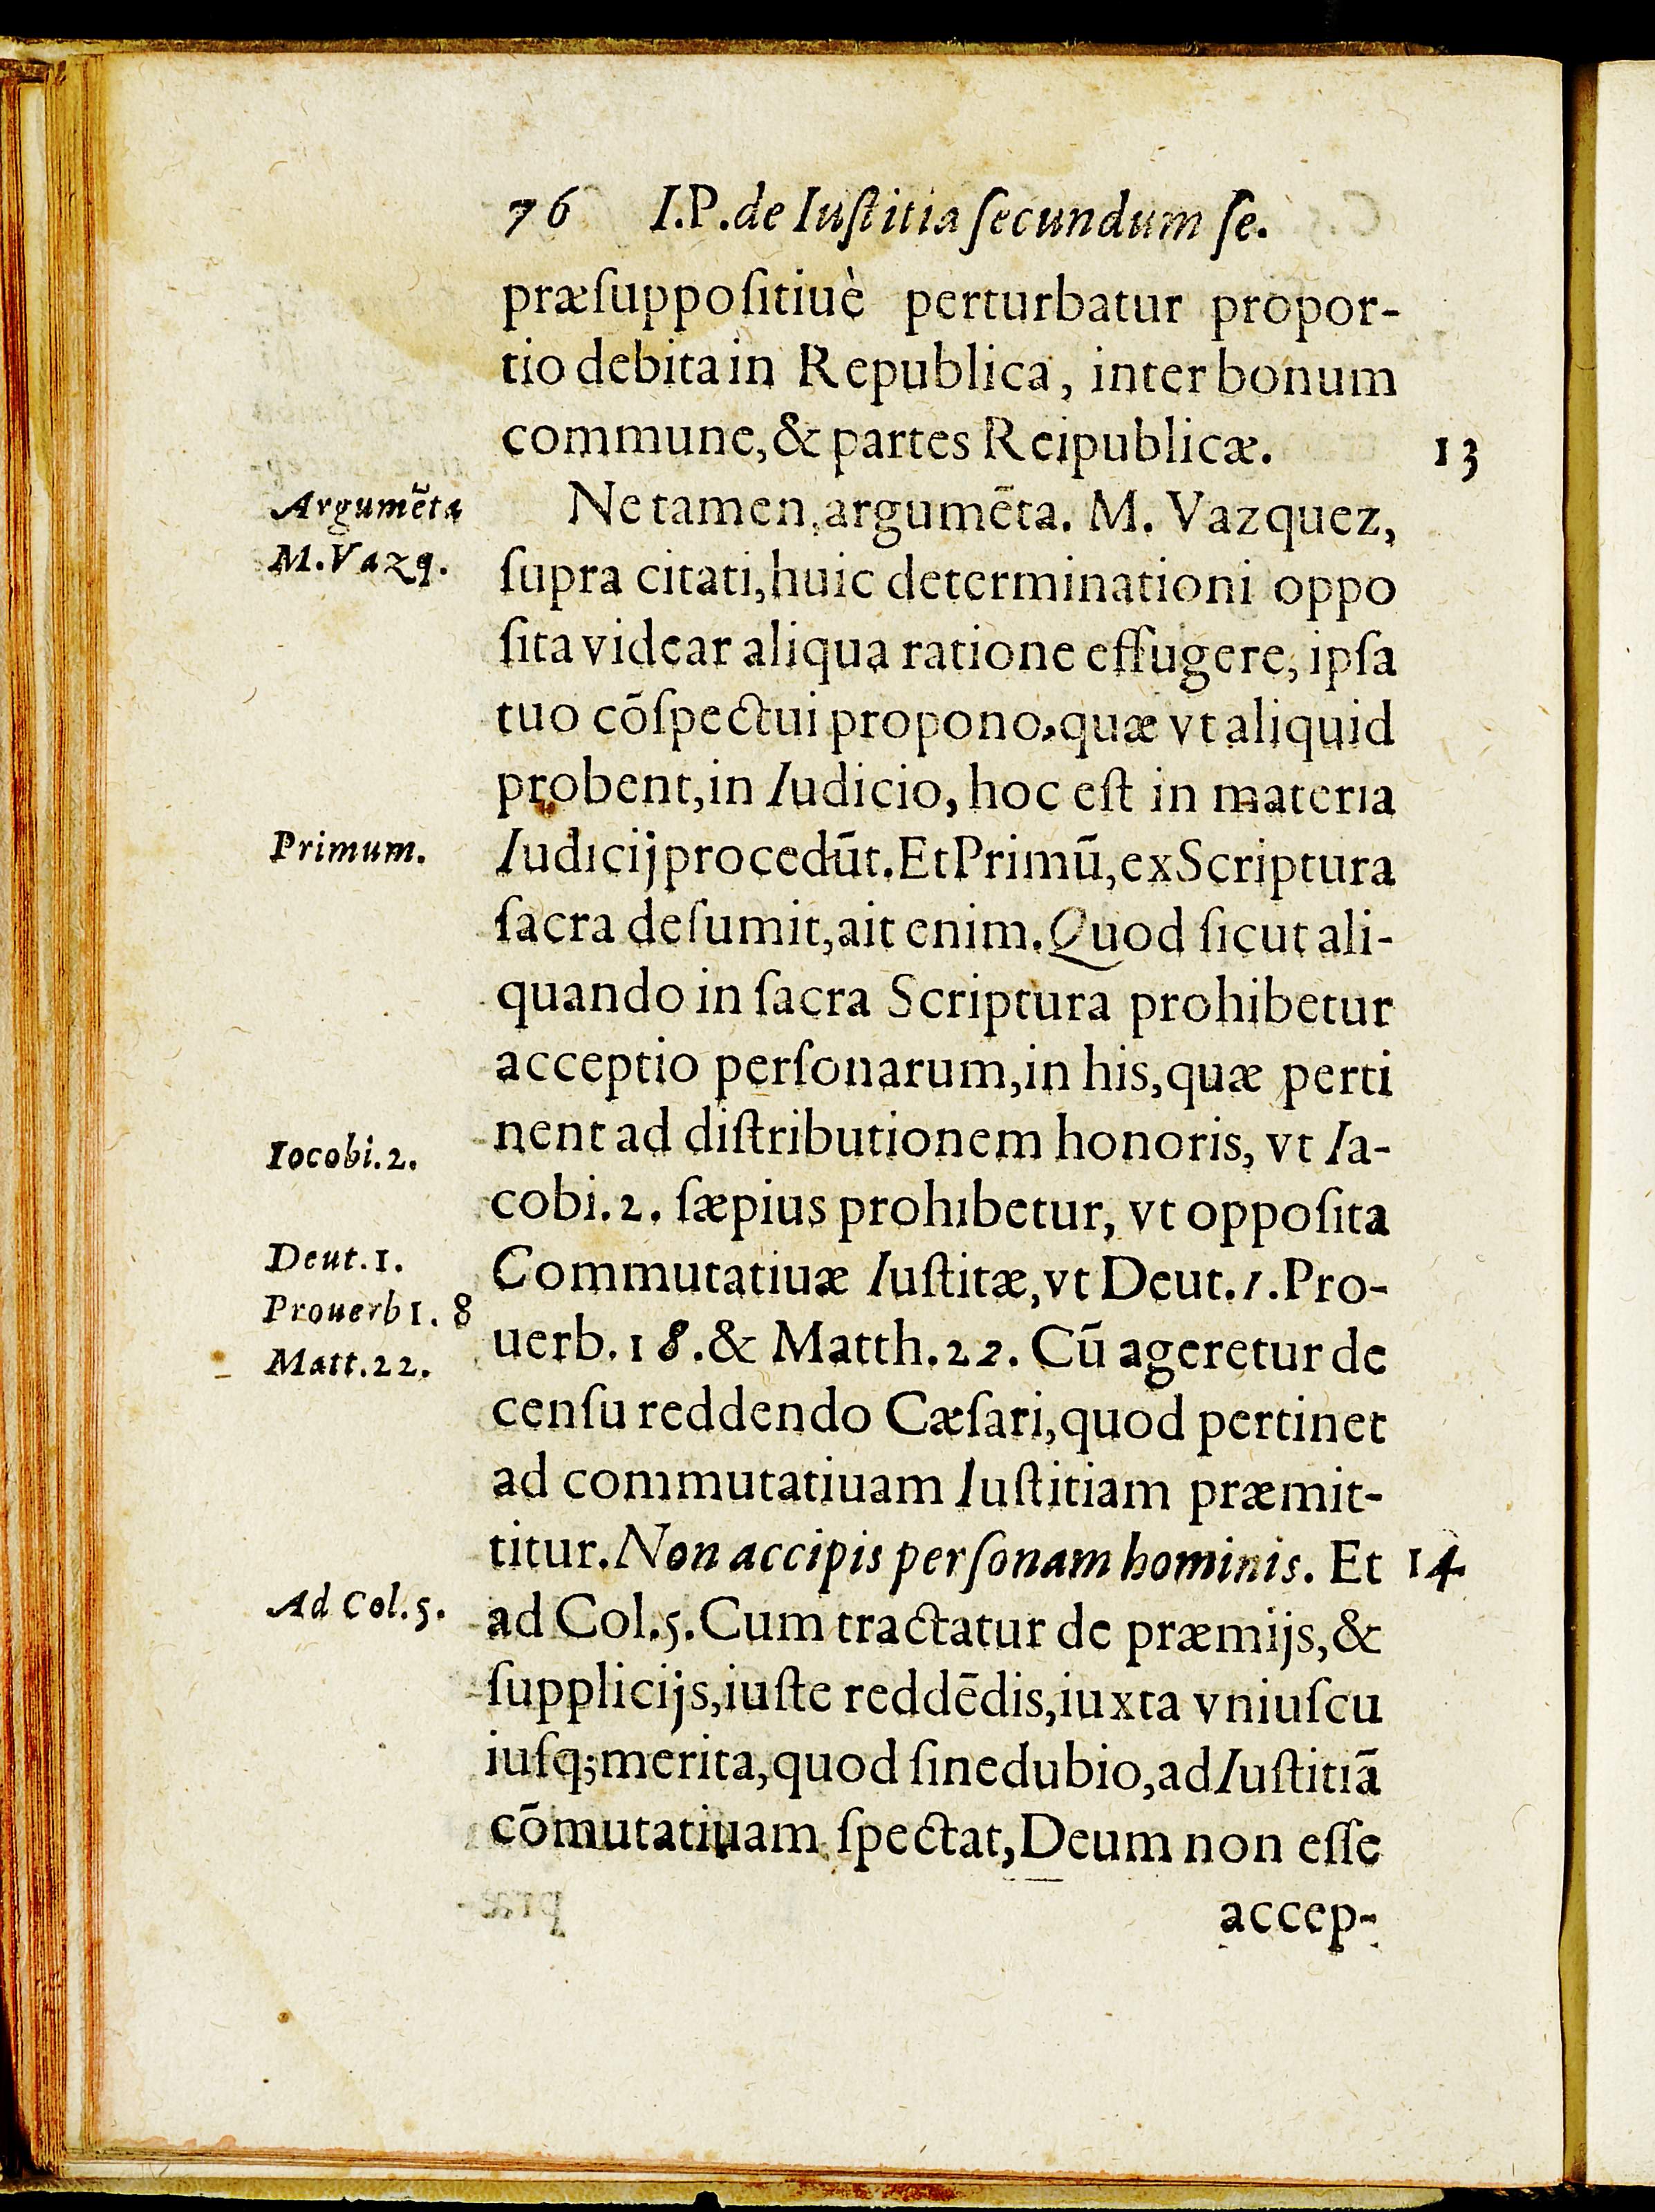 76 I.P.de Iuſtitia ſecundum ſe.
præſuppoſitiuè perturbatur propor-
tio debita in Republica, inter bonum
commune,& partes Reipublicæ.
13
Argumẽta
M.Vazq.
Ne tamen argumēta. M. Vazquez,
ſupra citati,huic determinationi oppo
ſita videar aliqua ratione effugere, ipſa
tuo cōſpectui propono,quæ vt aliquid
probent,in Iudicio, hoc eſt in materia
Primum.
Iudicij procedūt.Et Primū,ex Scriptura
ſacra deſumit,ait enim.Quod ſicut ali-
quando in ſacra Scriptura prohibetur
acceptio perſonarum,in his,quæ perti
Iocobi.2.
nent ad diſtributionem honoris, vt Ia-
cobi.2. ſæpius prohibetur, vt oppoſita
Deut.1.
Prouerb1. 8
Matt.22.
Commutatiuæ Iuſtitæ,vt Deut.1.Pro-
uerb.18.& Matth.22. Cū ageretur de
cenſu reddendo Cæſari,quod pertinet
ad commutatiuam Iuſtitiam præmit-
titur.Non accipis perſonam hominis. Et
14
Ad Col.5.
ad Col.5.Cum tractatur de præmijs,&
ſupplicijs,iuſte reddēdis,iuxta vniuſcu
iuſq;merita,quod ſinedubio,ad Iuſtitiā
cōmutatiuam ſpectat,Deum non eſſe
accep-